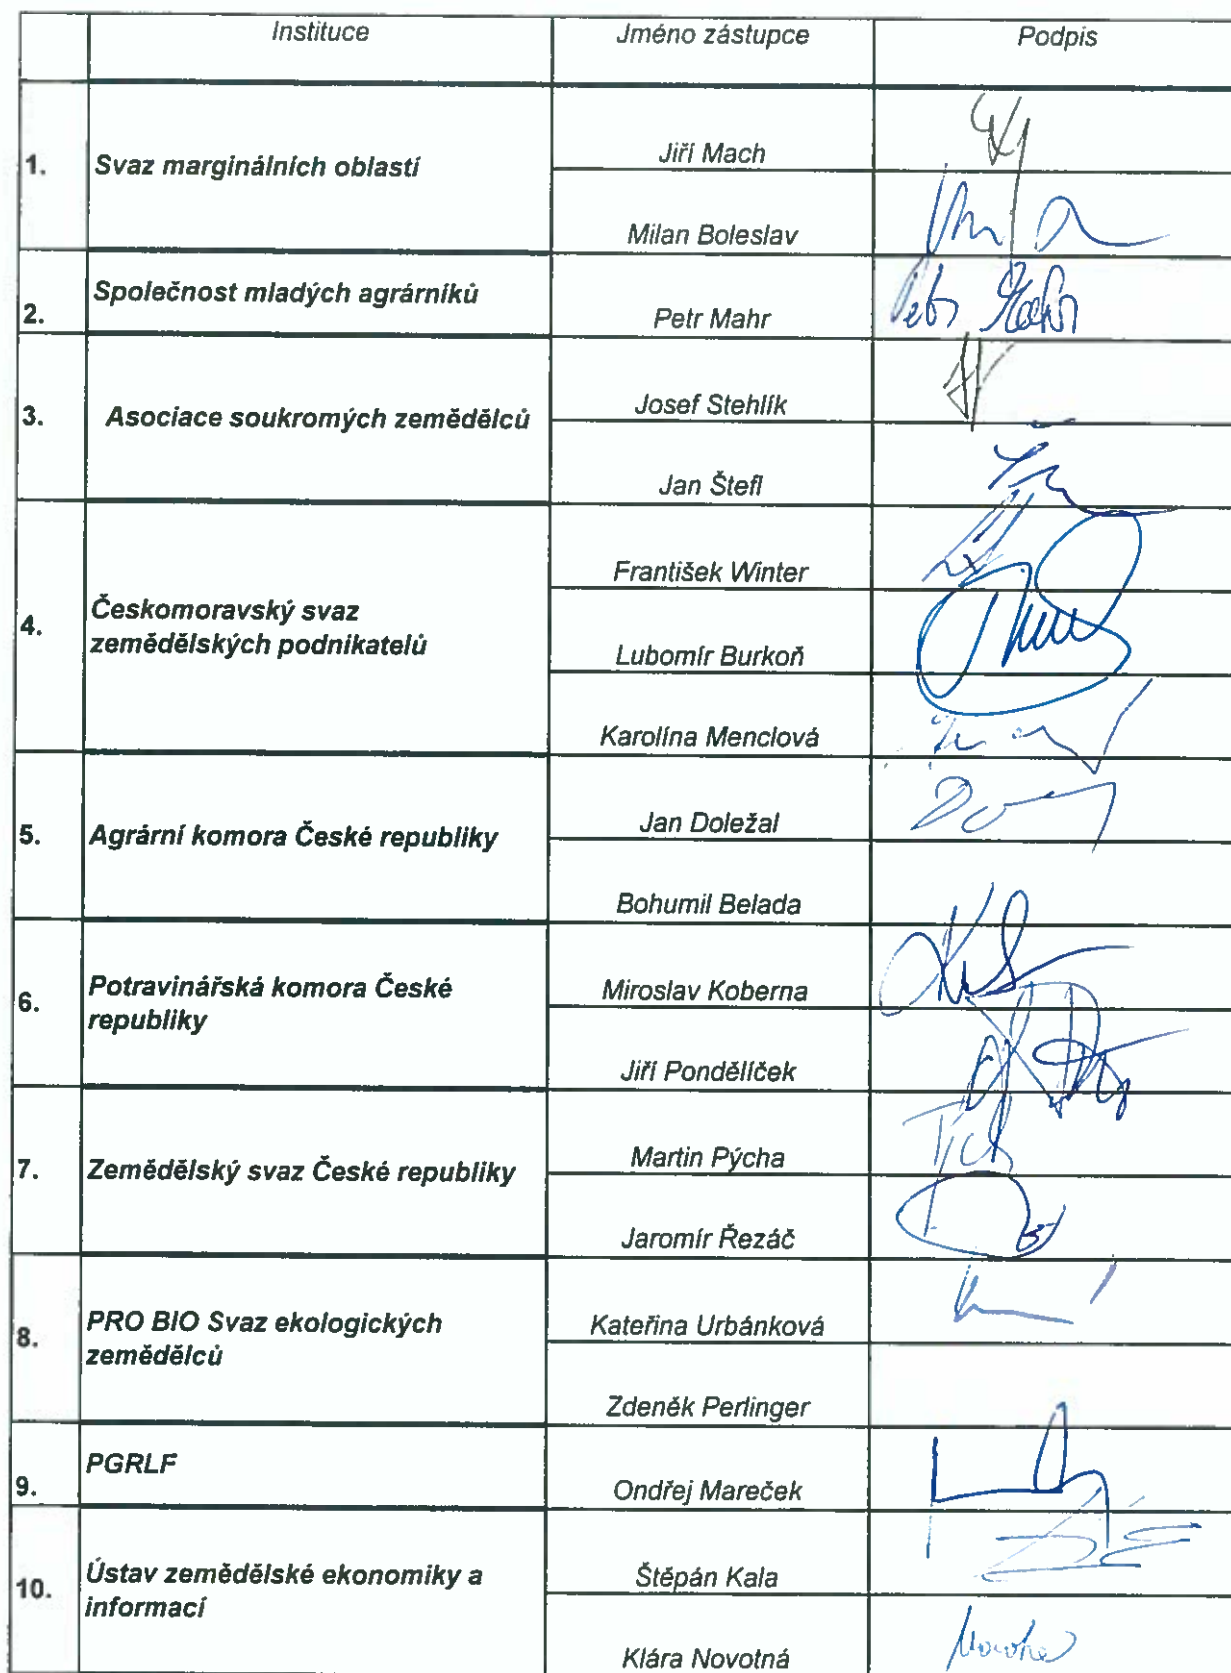 Instituce Jméno zástupce Podpis
1. Svaz marginálních oblastí Jiří Mach
Milan Boleslav
2. Společnost mladých agrárníků Petr Mahr
3. Asociace soukromých zemědělců Josef Stehlík
Jan Štefl
4. Českomoravský svaz
zemědělských podnikatelů František Winter
Lubomír Burkoň
Karolína Menclová
5. Agrární komora České republiky Jan Doležal
Bohumil Belada
6. Potravinářská komora České
republiky Miroslav Koberna
Jiří Pondělíček
7. Zemědělský svaz České republiky Martin Pýcha
Jaromír Řezáč
8. PRO BIO Svaz ekologických
zemědělců Kateřina Urbánková
Zdeněk Perlinger
9. PGRLF Ondřej Mareček
10. Ústav zemědělské ekonomiky a
informací Štěpán Kala
Klára Novotná